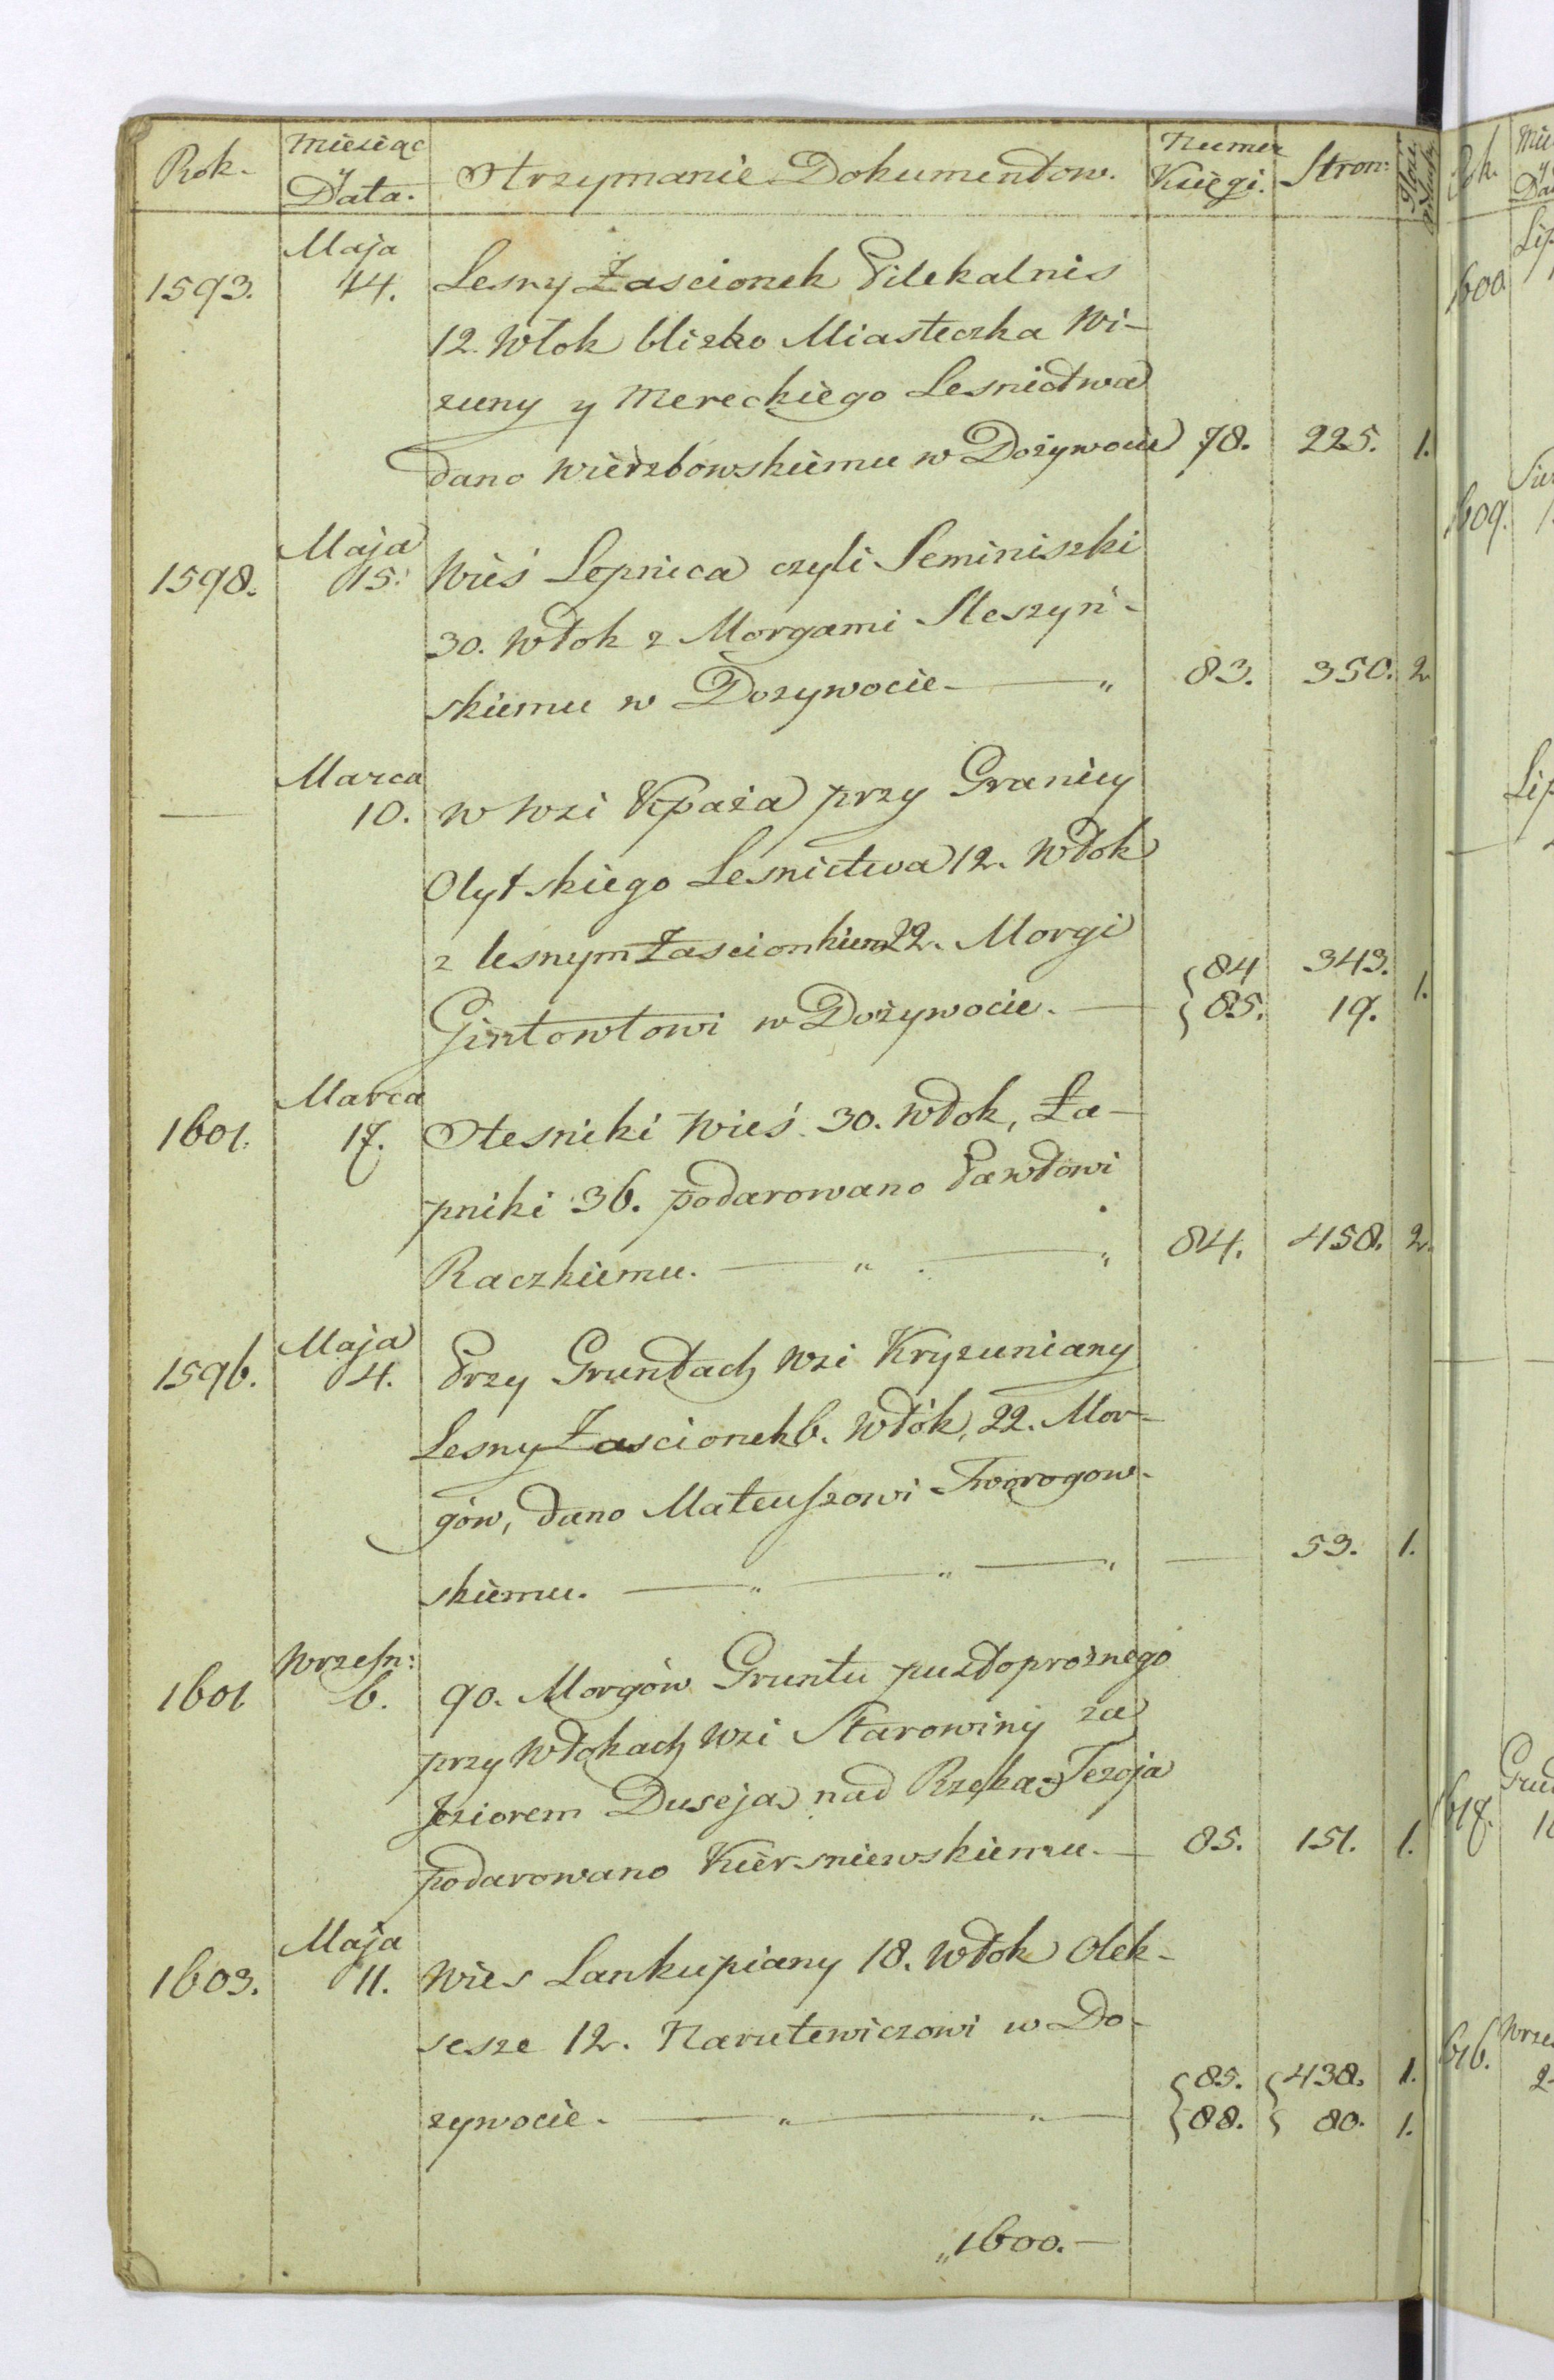 Rok. Miesiąc y Data. Otrzymanie Dokumentow. Numer Księgi. Stron:
Maja
1593. 14. Lesny Zascionek Pilekalnis
12. Włok blizko Miasteczka Wi-
zuny y Mereckiego Lesnictwa
dano Wierzbowskiemu w Dożywocie 78. 225. 1.
Maja
1598. 15. Wieś Lepnica czyli Seminiszki
30. Włok z Morgami Sleszyń-
skiemu w Dozywocie — „ 83. 350. 2
Marca
— 10. w Wzi Kpaża przy Granicy
Olytskiego Lesnictwa 12. Włok
z lesnym Zascionkiem 22. Morgi
Gintowtowi w Dożywocie. — { 84 343. 1.
{ 85. 19.
Marca
1601. 17. Olesniki Wieś 30. Włok, Ła-
pniki 36. podarowano Pawłowi
Raczkiemu. — „ — „ 84. 458. 2.
Maja
1596. 4. Przy Gruntach Wzi Kryzuniany
Lesny Zascionek 6. Włók, 22. Mor-
gów, dano Mateuszowi Tworogow-
skiemu. — „ — „ — „ — 53. 1.
Wrzesn:
1601 6. 90. Morgów Gruntu pustoprożnego
przy Włokach Wzi Starowiny za
Jeziorem Duseja nad Rzeką Tezoja
podarowano Kiersniewskiemu. — 85. 151. 1.
Maja
1603. 11. Wies Lankupiany 18. Włok Olek-
sesze 12. Narutewiczowi w Do-
zywocie. — „ — „ — { 85. { 438. 1.
{ 88. { 80. 1.
„1600. —